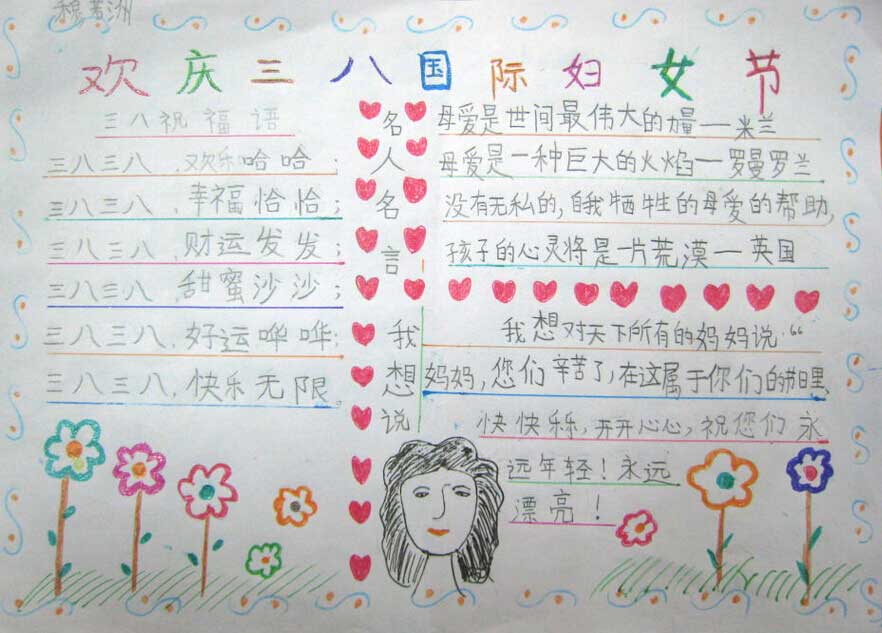 欢庆三八国际妇女节
三八祝福语
三八三八,欢乐哈哈;
三八三八,幸福恰恰;
三八三八,财运发发;
三八三八,甜蜜沙沙;
三八三八,好运哗哗;
三八三八,快乐无限。
名人名言
母爱是世间最伟大的力量—米兰
母爱是一种巨大的火焰—罗曼罗兰
没有无私的,自我牺牲的母爱的帮助,
孩子的心灵将是一片荒漠—英国
我想说
我想对天下所有的妈妈说:“
妈妈,您们辛苦了,在这属于你们的节日里,
快快乐乐,开开心心,祝您们永
远年轻!永远
漂亮!